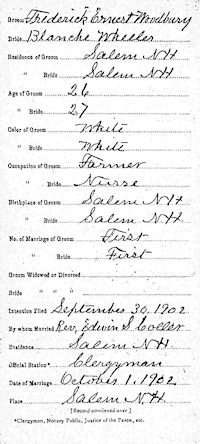 Groom Frederick Ernest Woodbury
Bride Blanche Wheeler
Residence of Groom Salem NH
" Bride Salem NH
Age of Groom 26
" Bride 27
Color of Groom White
" Bride White
Occupation of Groom Farmer
" Bride Nurse
Birthplace of Groom Salem NH
" Bride Salem N.H.
No. of Marriage of Groom First
" Bride First
Groom Widowed or Divorced
Bride " " "
Intention Filed September 30, 1902
By whom Married Rev. Edwin S Coller
Residence Salem N.H
Official Station* Clergyman
Date of Marriage October 1, 1902
Place Salem N.H.
[Record continued over]
*Clergyman, Notary Public, Justice of the Peace, etc.